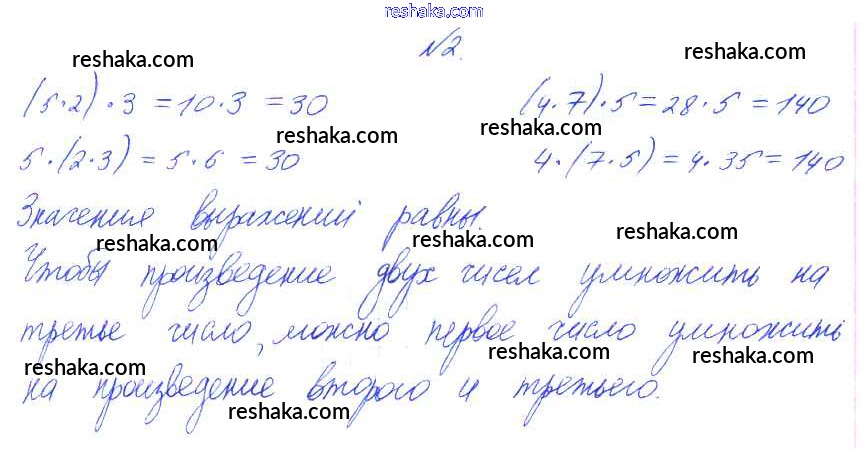 reshaka.com
№2.
reshaka.com reshaka.com
(5·2)·3=10·3=30 (4·7)·5=28·5=140
reshaka.com reshaka.com
5·(2·3)=5·6=30 4·(7·5)=4·35=140
Значения выражений равны.
reshaka.com reshaka.com reshaka.com
Чтобы произведение двух чисел умножить на
reshaka.com reshaka.com
третье число, можно первое число умножить
reshaka.com reshaka.com reshaka.com
на произведение второго и третьего.
reshaka.com reshaka.com